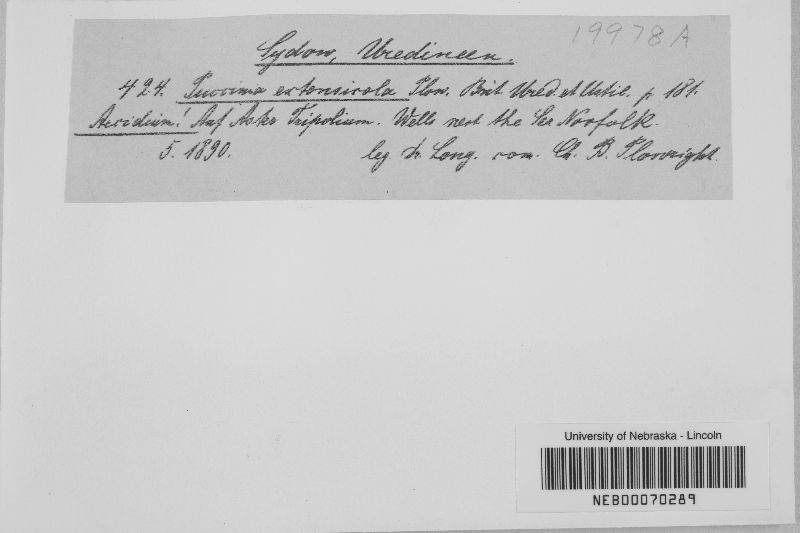 19978A
Sydow, Uredineen.
424. Puccinia extensicola Plow. Brit. Ured. et Ustil. p. 181.
Aecidium! Auf Aster Tripolium. Wells next the Sea Norfolk.
5. 1890. leg. Dr. Long. com. Ch. B. Plowright.
University of Nebraska - Lincoln
NEB00070289